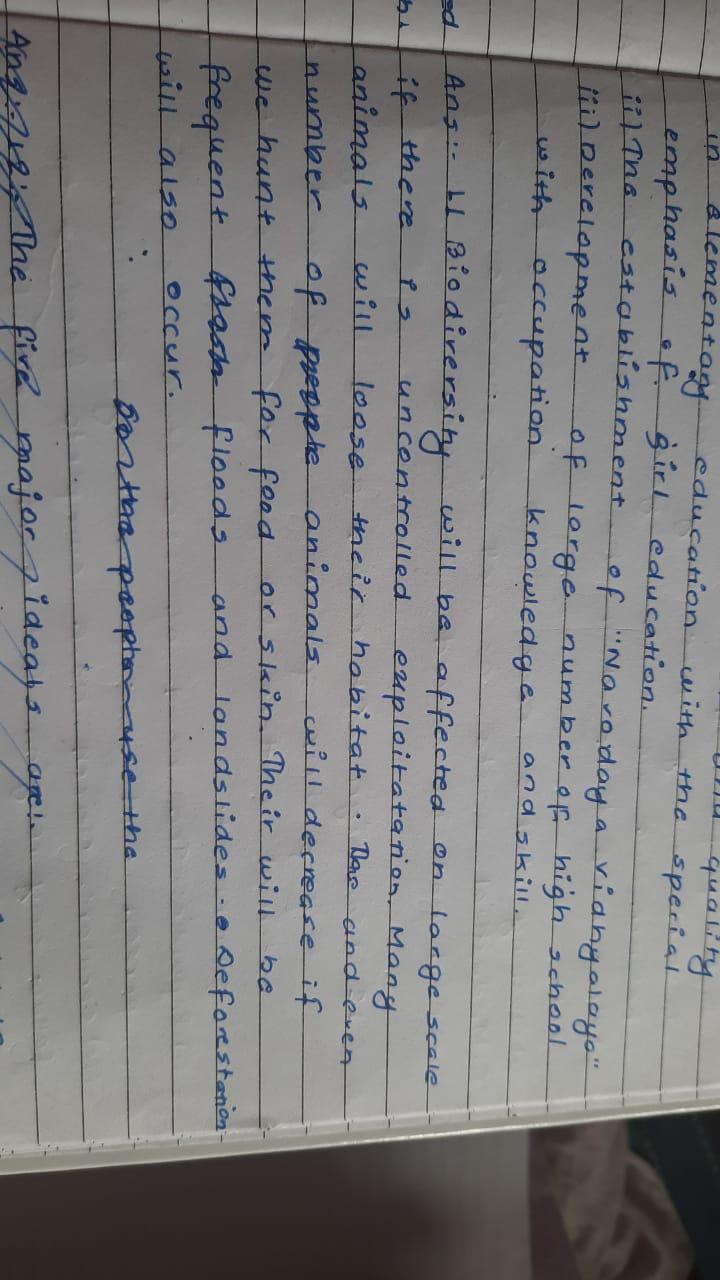 in elementary education with the special quality
emphasis of girl education.
ii) The establishment of "Navodaya vidhyalaya"
iii) Development of large number of high school
with occupation knowledge and skill.
Ans:- Biodiversity will be affected on large scale
if there is uncontrolled exploitatation. Many
animals will loose their habitat. and even
number of people animals will decrease if
we hunt them for food or skin. Their will be
frequent floods and landslides. Deforestation
will also occur.
the people use the
Ans: The five major ideals are: